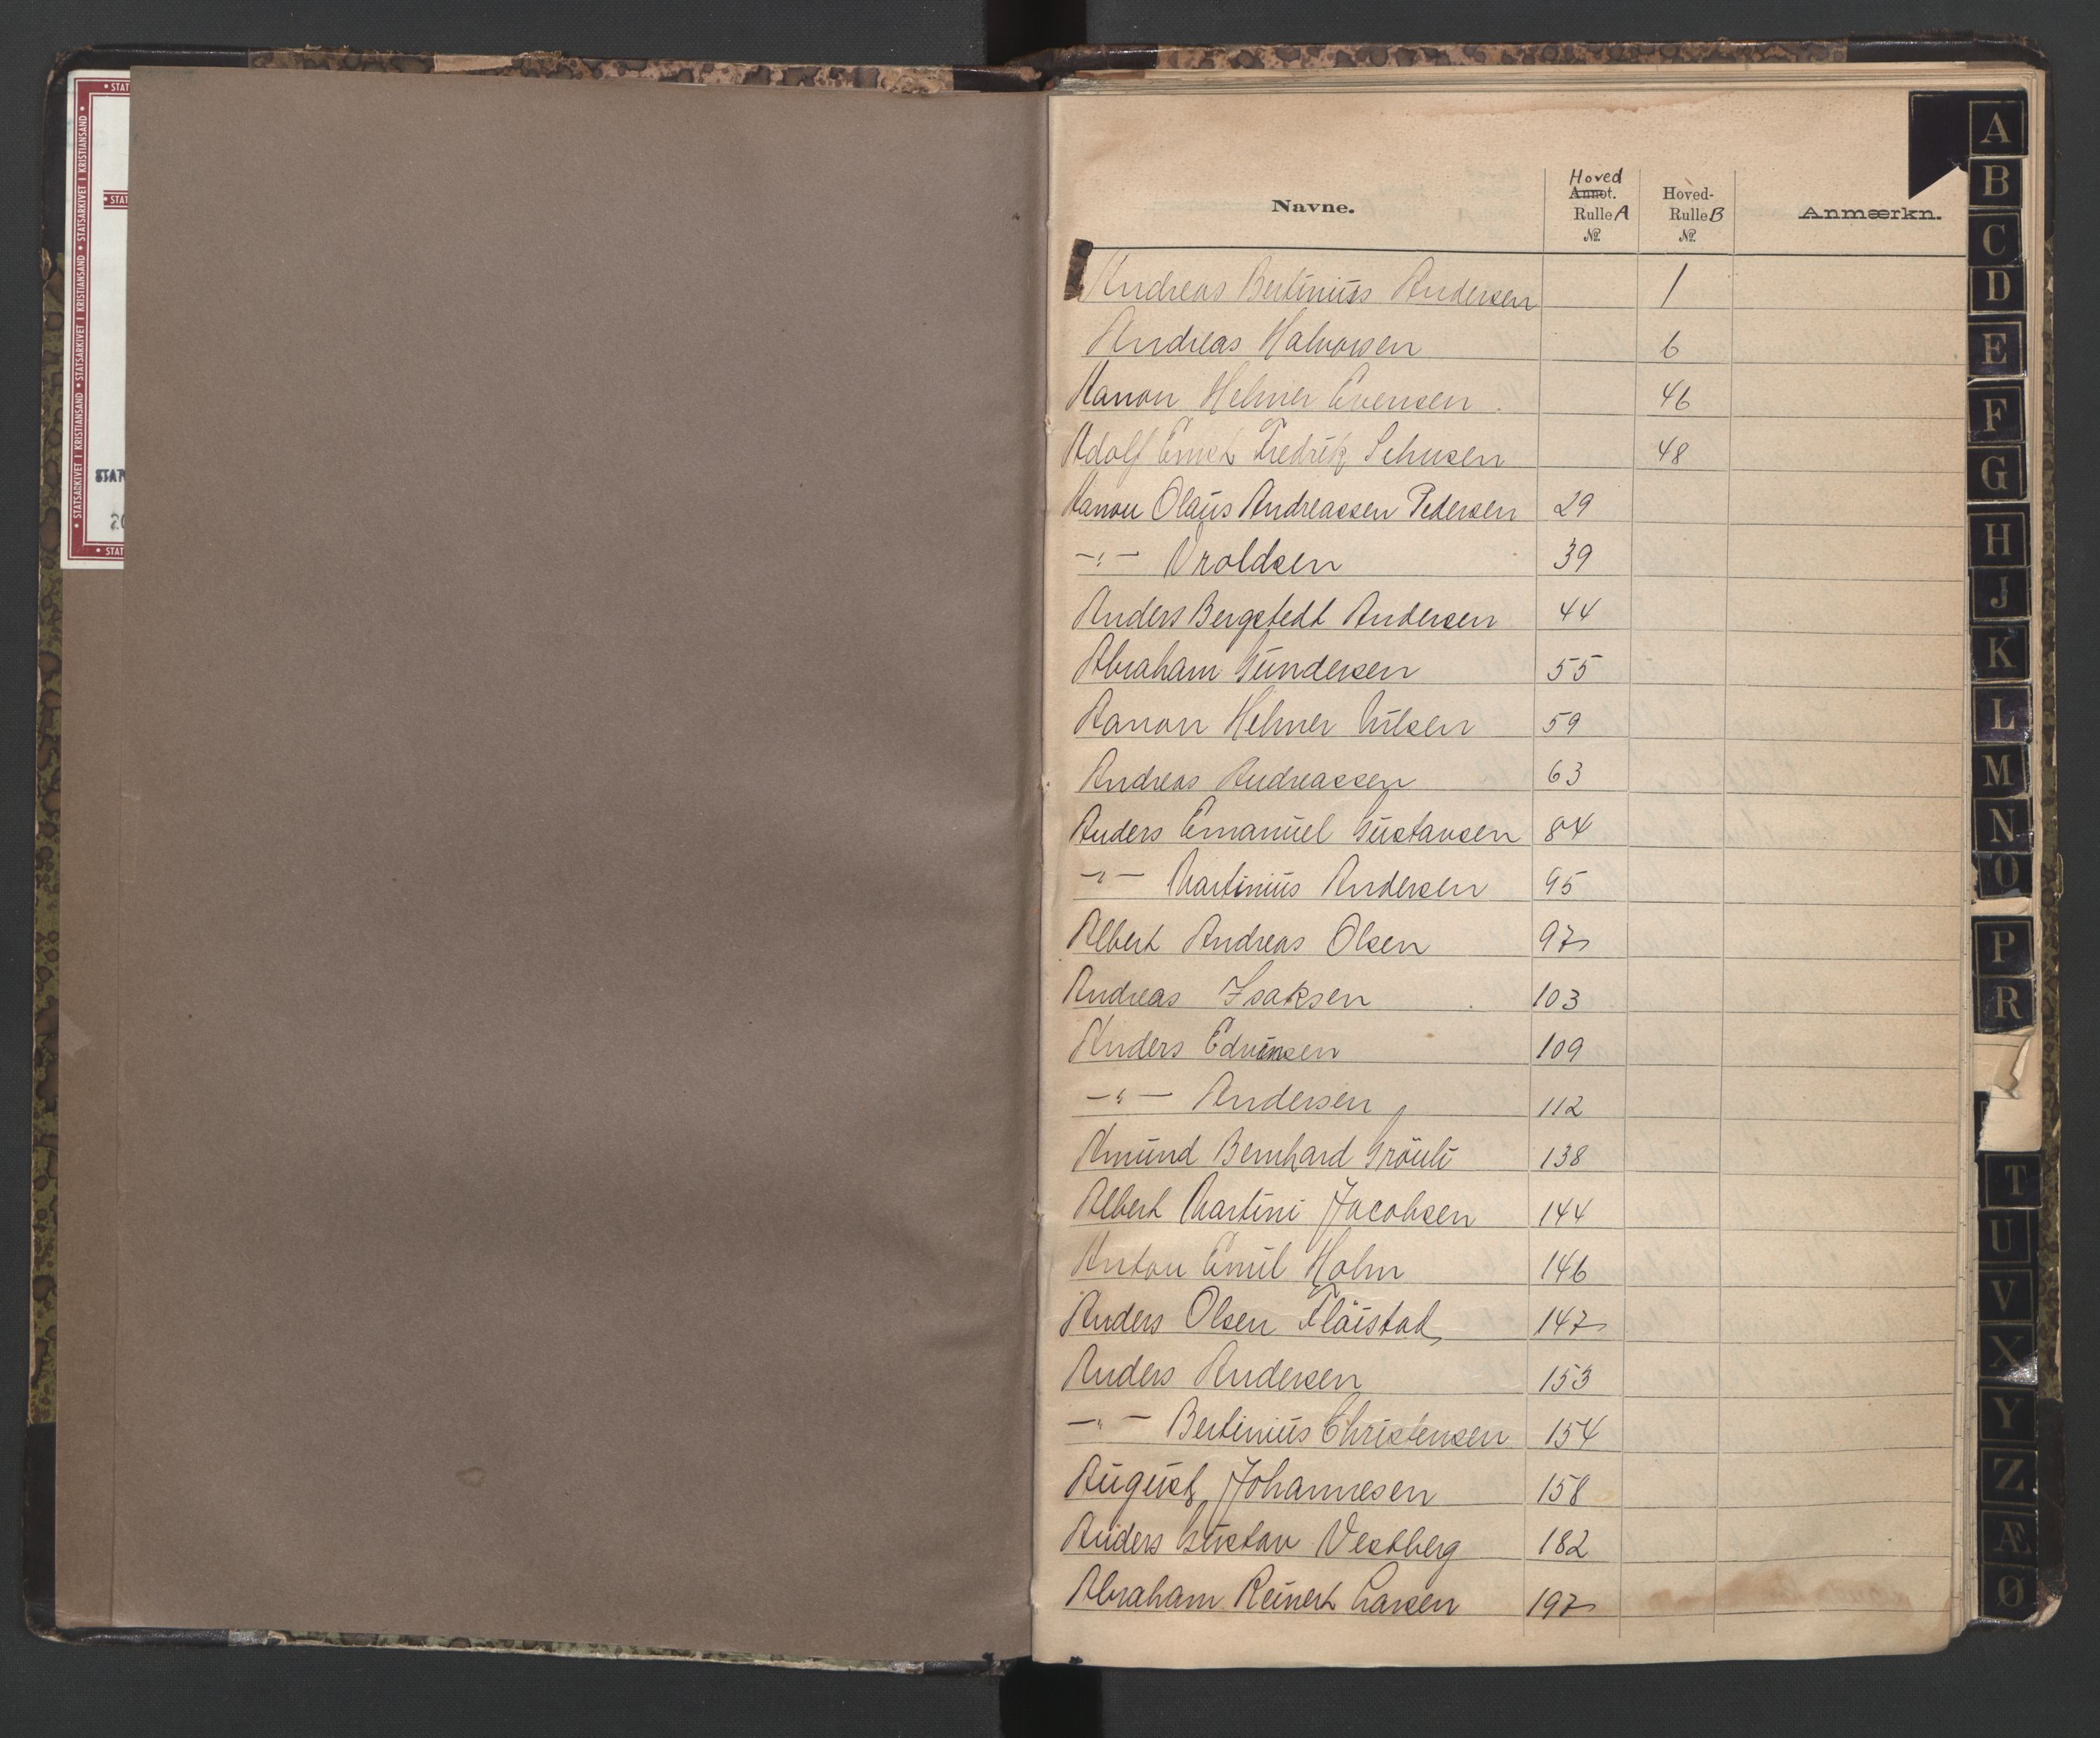 Navne.
Hoved
Annot.
Rulle A
№
Hoved-
Rulle B
№
Anmærkn.
Andreas Bertinius Andersen 1
Andreas Halvorsen 6
Aanon Helmer Evensen 46
Adolf Ernst Fredrik 48
Aanon Olaus Andreassen Pedersen 29
-"- Vroldsen 39
Anders Bergstedt Andersen 44
Abraham Gundersen 55
Aanon Helmer Nilsen 59
Andreas Andreassen 63
Anders Emanuel Gustavsen 84
-"- Martinius Andersen 95
Albert Andreas Olsen 97
Andreas Isaksen 103
Anders Edvinsen 109
-"- Andersen 112
Amund Bernhard 138
Albert Martini Jacobsen 144
Anton Emil Holm 146
Anders Olsen Fløistad 147
Anders Andersen 153
-"- Bertinius Christensen 154
August Johannesen 158
Anders Gustav Vestberg 182
Abraham Reinert Larsen 197
A
B
C
D
E
F
G
H
J
K
L
M
N
O
P
R
T
U
V
X
Y
Z
Æ
Ø
STATSARKIVET I KRISTIANSAND • STATSARKIVET I KRISTIANSAND • STATSARKIVET I KRISTIANSAND